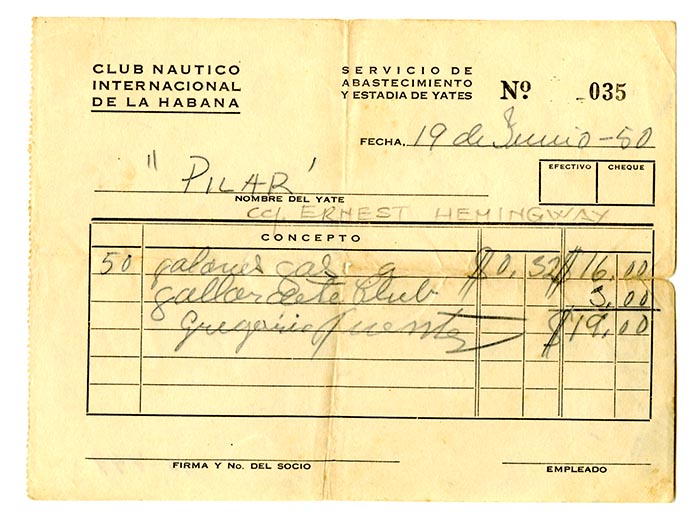 CLUB NAUTICO
INTERNACIONAL
DE LA HABANA
SERVICIO DE
ABASTECIMIENTO
Y ESTADIA DE YATES
Nº 035
FECHA, 19 de Junio-50
"PILAR"
NOMBRE DEL YATE
EFECTIVO CHEQUE
ERNEST HEMINGWAY
CONCEPTO
50 galones gas a $0.32 $16.00
gallardete Club 3.00
Gregorio Fuentes $19.00
FIRMA Y No. DEL SOCIO
EMPLEADO